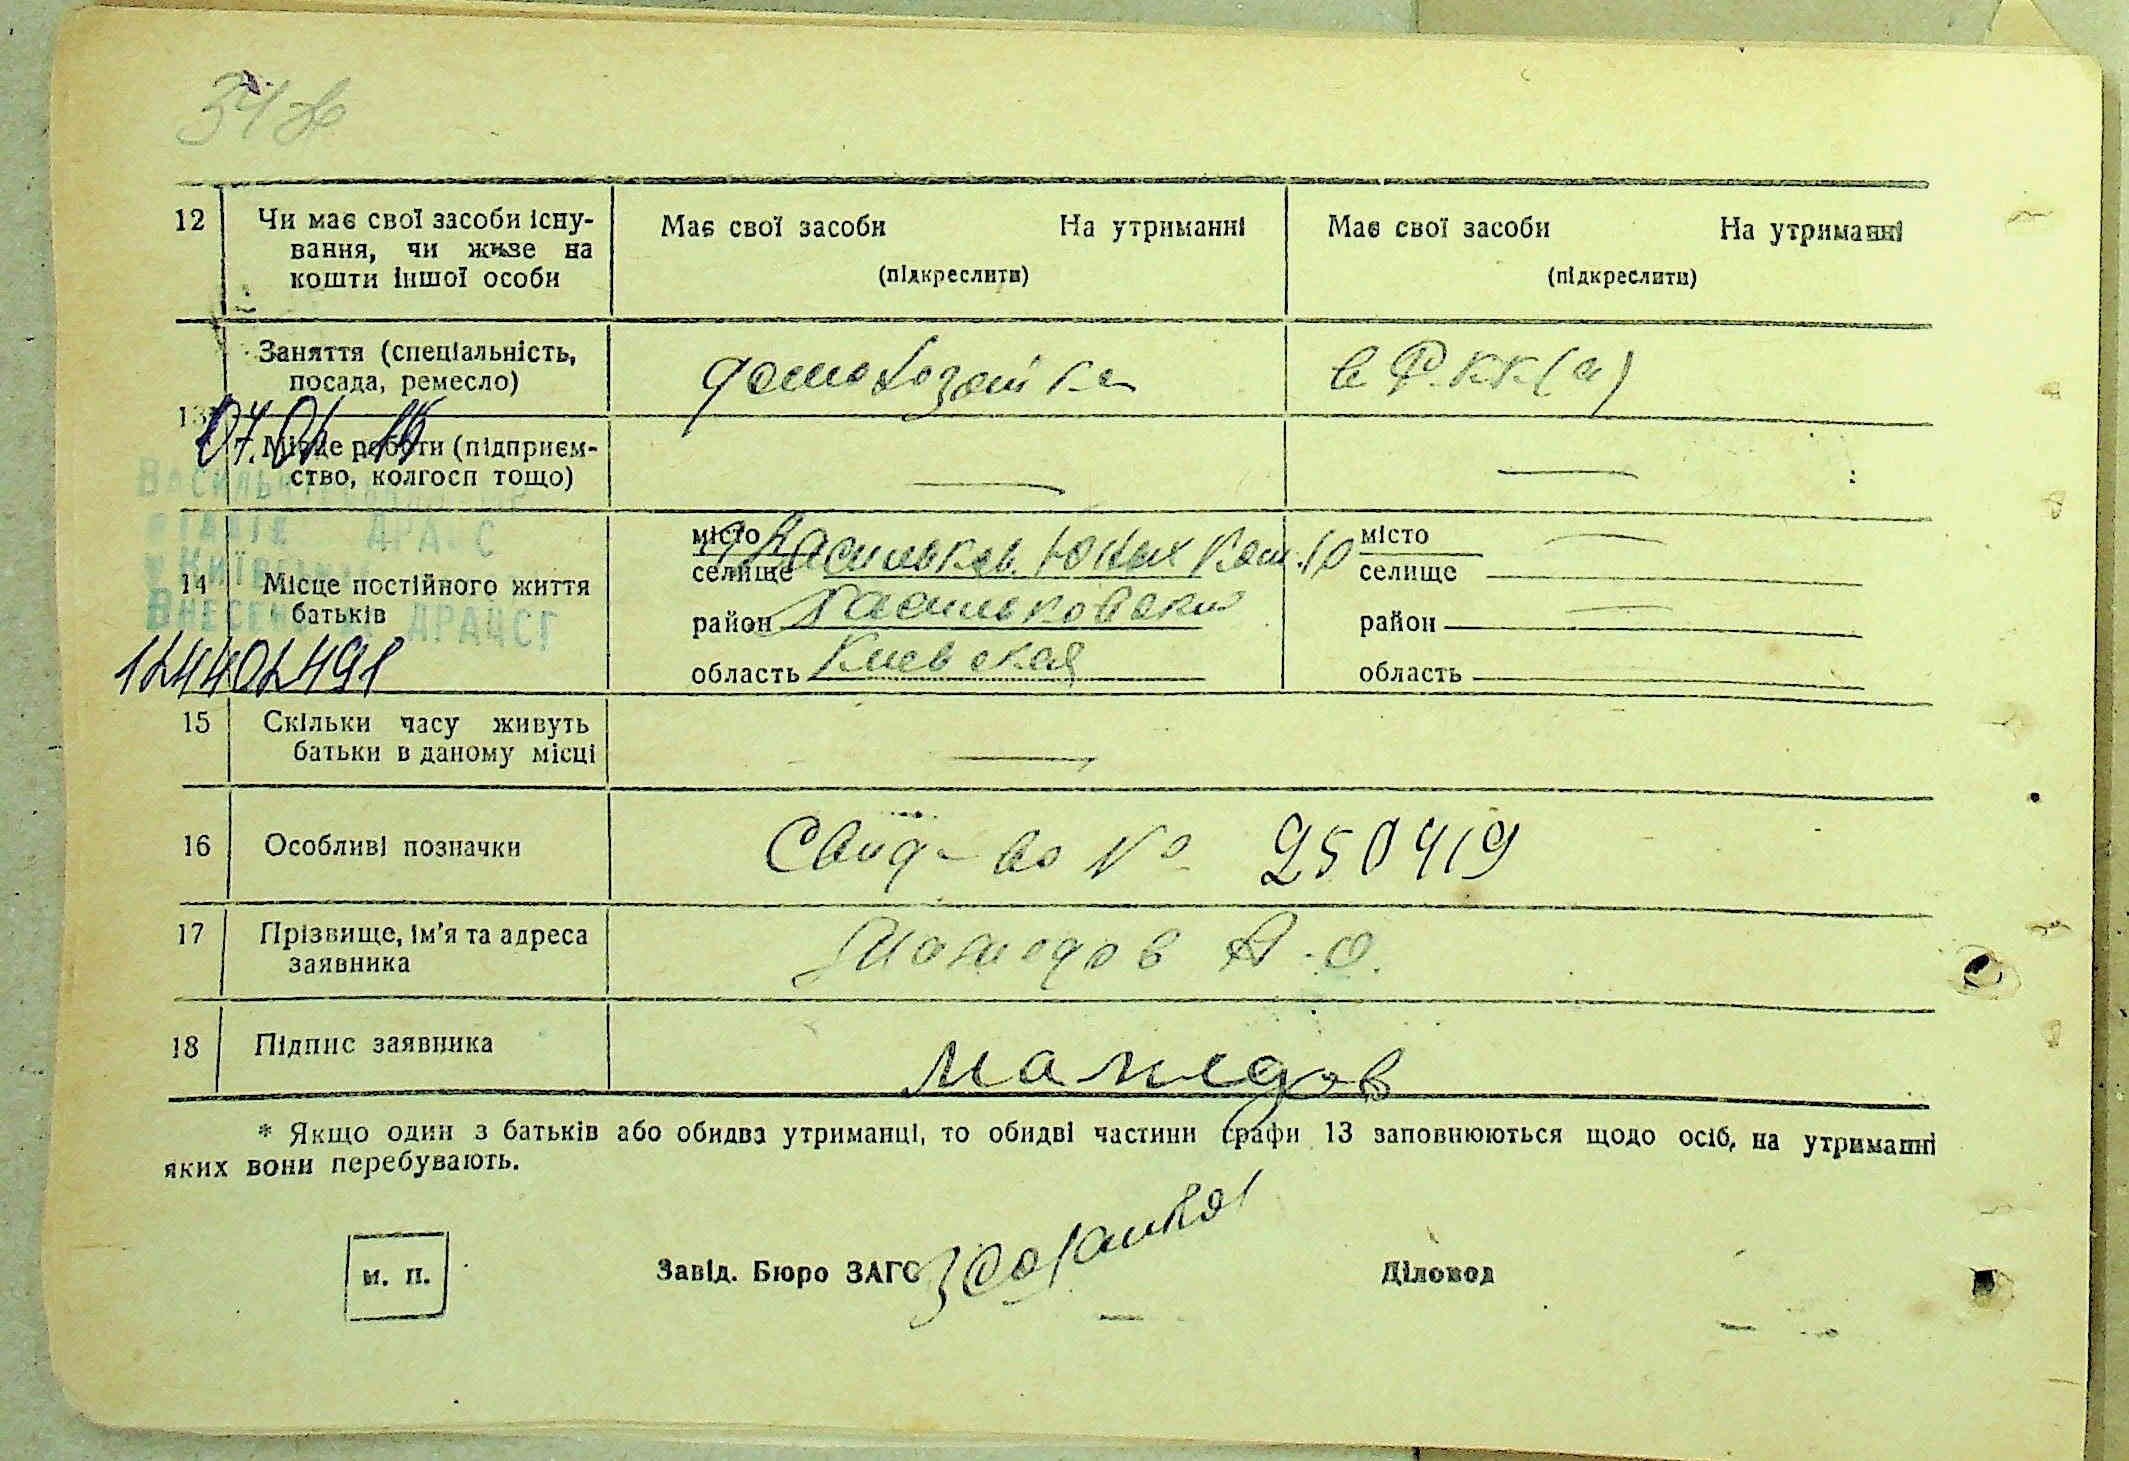 34
12 Чи має свої засоби існу- Має свої засоби На утриманні Має свої засоби На утриманні
вання, чи живе на (підкреслити) (підкреслити)
кошти іншої особи
Заняття (спеціальність, домохозяйка в Р.КК(а)
посада, ремесло)
13
07.01.16
Місце роботи (підприєм-
ство, колгосп тощо) — —
ДРАЦС
Внесено ДРАЦСГ
14 Місце постійного життя
батьків
місто г Васильков. Юных Ком. 10 місто —
селище селище
район Васильковский район —
область Киевская область
124402491
15 Скільки часу живуть
батьки в даному місці —
16 Особливі позначки Свид-во № 250419
17 Прізвище, ім'я та адреса Мамедов А.О.
заявника
18 Підпис заявника Мамедов
* Якщо один з батьків або обидва утриманці, то обидві частини графи 13 заповнюються щодо осіб, на утриманні
яких вони перебувають.
м. п. Завід. Бюро ЗАГС Діловод